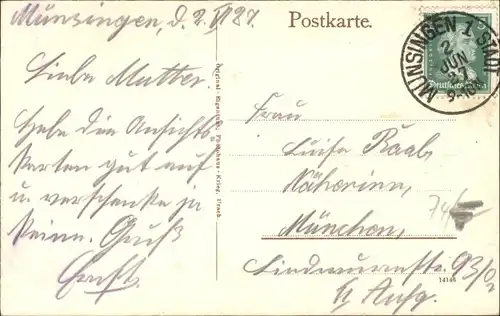 Münsingen, d. 2. VI 27.
Liebe Mutter.
Hebe die Ansichts
karten gut auf
u. verschenke ja
keine. Gruß
Ernst.
Original-Eigentum, Photohaus-Krieg, Urach.
Postkarte.
MÜNSINGEN 1. STADT
2.
JUN
27
Deutsches Reich
Frau
Luise Raab,
Näherin,
München,
Lindwurmstr. 93/0
II Aufg.
14146